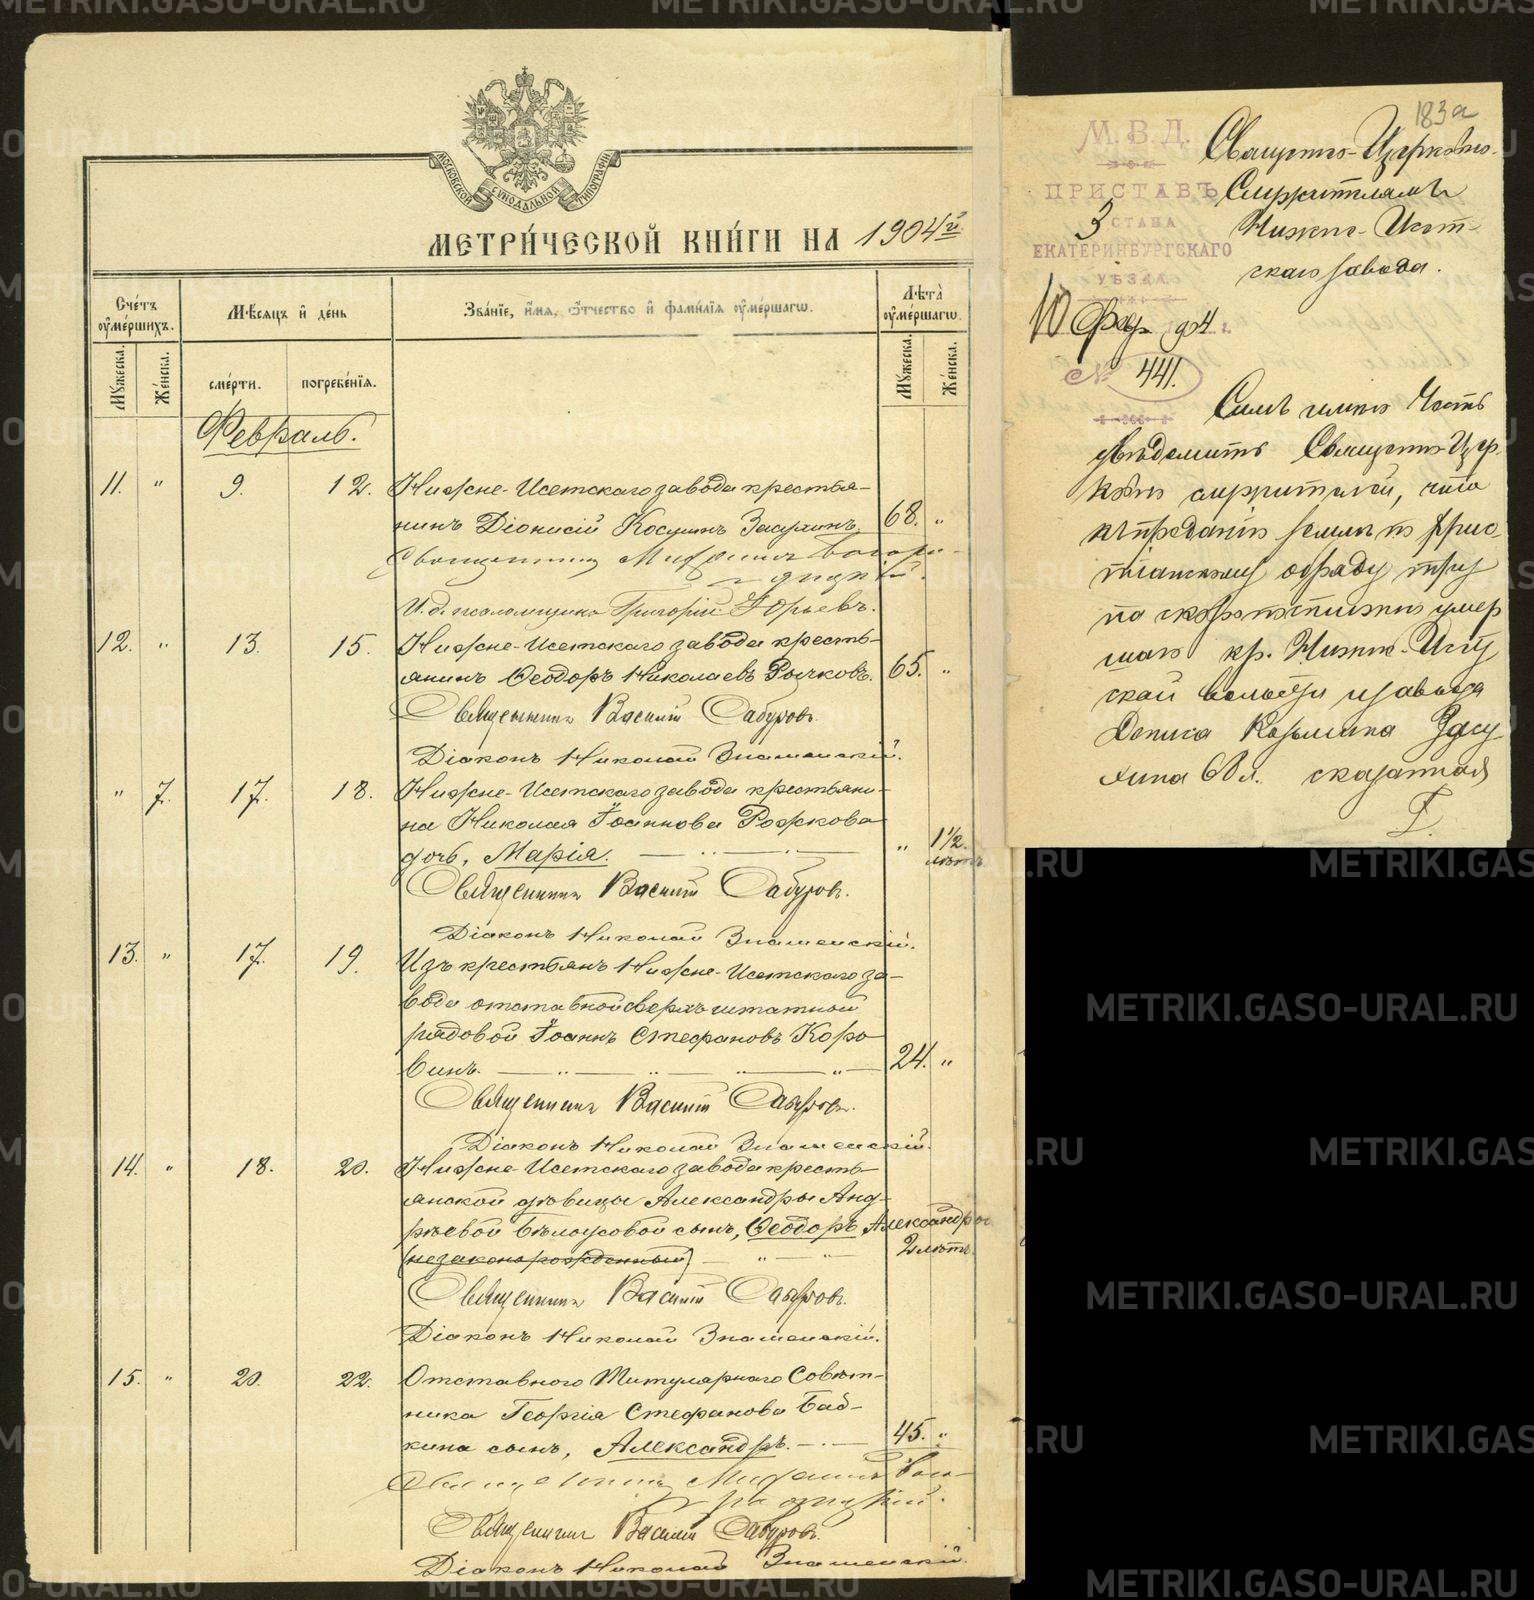 МОСКОВСКОЙ СУНОДАЛЬНОЙ ТИПОГРАФІИ
МЕТРИ́ЧЕСКОЙ КНИ́ГИ НА 1904й
Сче́тъ ᲂу҆ме́ршихъ.
Мѣ́сяцъ и҆ де́нь
Зва́нїе, и҆́мѧ, ѻ҆́тчество и҆ фами́лїѧ ᲂу҆ме́ршагѡ.
Лѣ́та ᲂу҆ме́ршагѡ.
Мꙋ́жеска.
Же́нска.
сме́рти.
погребе́нїѧ.
Мꙋ́жеска.
Же́нска.
Февраль.
11. " 9. 12. Нижне-Исетскаго завода крестья-
нинъ Діонисій Косминъ Засухинъ. 68. "
Священникъ Михаилъ
И.д. псаломщика Григорій Юрьевъ.
12. " 13. 15. Нижне-Исетскаго завода кресть-
янинъ Ѳеодоръ Николаевъ Рычковъ. 65. "
Священникъ Василій Сабуровъ.
Діаконъ Николай Знаменскій.
" 7. 17. 18. Нижне-Исетскаго завода крестьяни-
на Николая Іоаннова Рожкова
дочь, Марія. " 1½ лѣтъ
Священникъ Василій Сабуровъ.
Діаконъ Николай Знаменскій.
13. " 17. 19. Изъ крестьянъ Нижне-Исетскаго за-
вода отставной сверхъ штатный
рядовой Іоаннъ Стефановъ Коро-
винъ. 24. "
Священникъ Василій Сабуровъ.
Діаконъ Николай Знаменскій.
14. " 18. 20. Нижне-Исетскаго завода кресть-
янской дѣвицы Александры Анд-
реевой Бѣлоусовой сынъ, Ѳеодоръ Александро
(незаконорожденный) 2 лѣтъ.
Священникъ Василій Сабуровъ.
Діаконъ Николай Знаменскій.
15. " 20. 22. Отставного Титулярнаго Совѣт-
ника Георгія Стефанова Баб-
кина сынъ, Александръ. 45. "
Священникъ Михаилъ
Священникъ Василій Сабуровъ.
Діаконъ Николай Знаменскій.
183а
М.В.Д.
ПРИСТАВЪ
3 СТАНА
ЕКАТЕРИНБУРГСКАГО
УѢЗДА.
10 Фев. 904 г.
№ 441.
Священно-Церковно-
Служителямъ
Нижне-Исет-
скаго завода.
Симъ имѣю честь
увѣдомить Священно-Цер
ковно служителей, что
къ преданію землѣ по хрис-
тіанскому обряду трупа
скоропостижно умер
шаго кр. Нижне-Исет
ской волости и завода
Дениса Козьмина Засу
хина 68 л.
METRIKI.GASO-URAL.RU